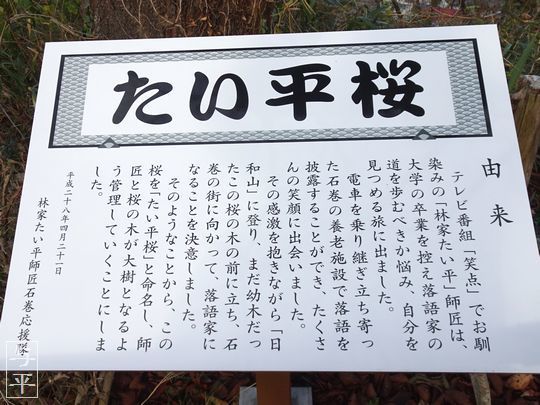 たい平桜
由来
テレビ番組「笑点」でお馴
染みの「林家たい平」師匠は、
大学の卒業を控え落語家の
道を歩むべきか悩み、自分を
見つめる旅に出ました。
電車を乗り継ぎ立ち寄っ
た石巻の養老施設で落語を
披露することができ、たくさ
んの笑顔に出会いました。
その感激を抱きながら「日
和山」に登り、まだ幼木だっ
たこの桜の木の前に立ち、石
巻の街に向かって、落語家に
なることを決意しました。
そのようなことから、この
桜を「たい平桜」と命名し、師
匠と桜の木が大樹となるよ
う管理していくことにしま
した。
平成二十八年四月二十一日
林家たい平師匠石巻応援隊
平